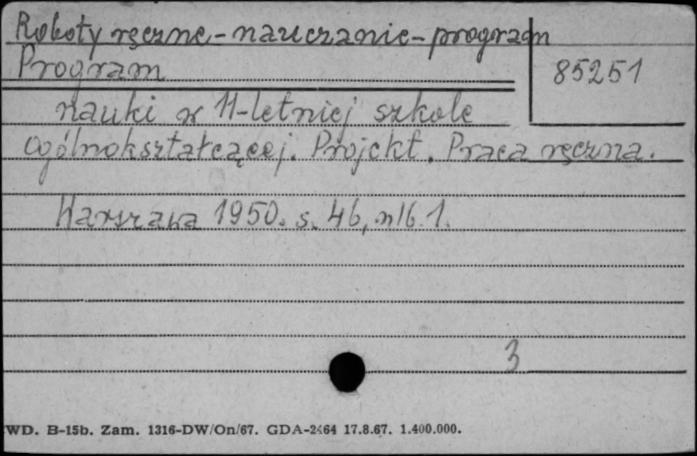 Roboty ręczne - nauczanie - program
Program
85251
nauki w 11-letniej szkole
ogólnokształcącej. Projekt. Praca ręczna.
Warszawa 1950. s. 46, nlb. 1.
3
WD. B-15b. Zam. 1316-DW/On/67. GDA-2464 17.8.67. 1.400.000.